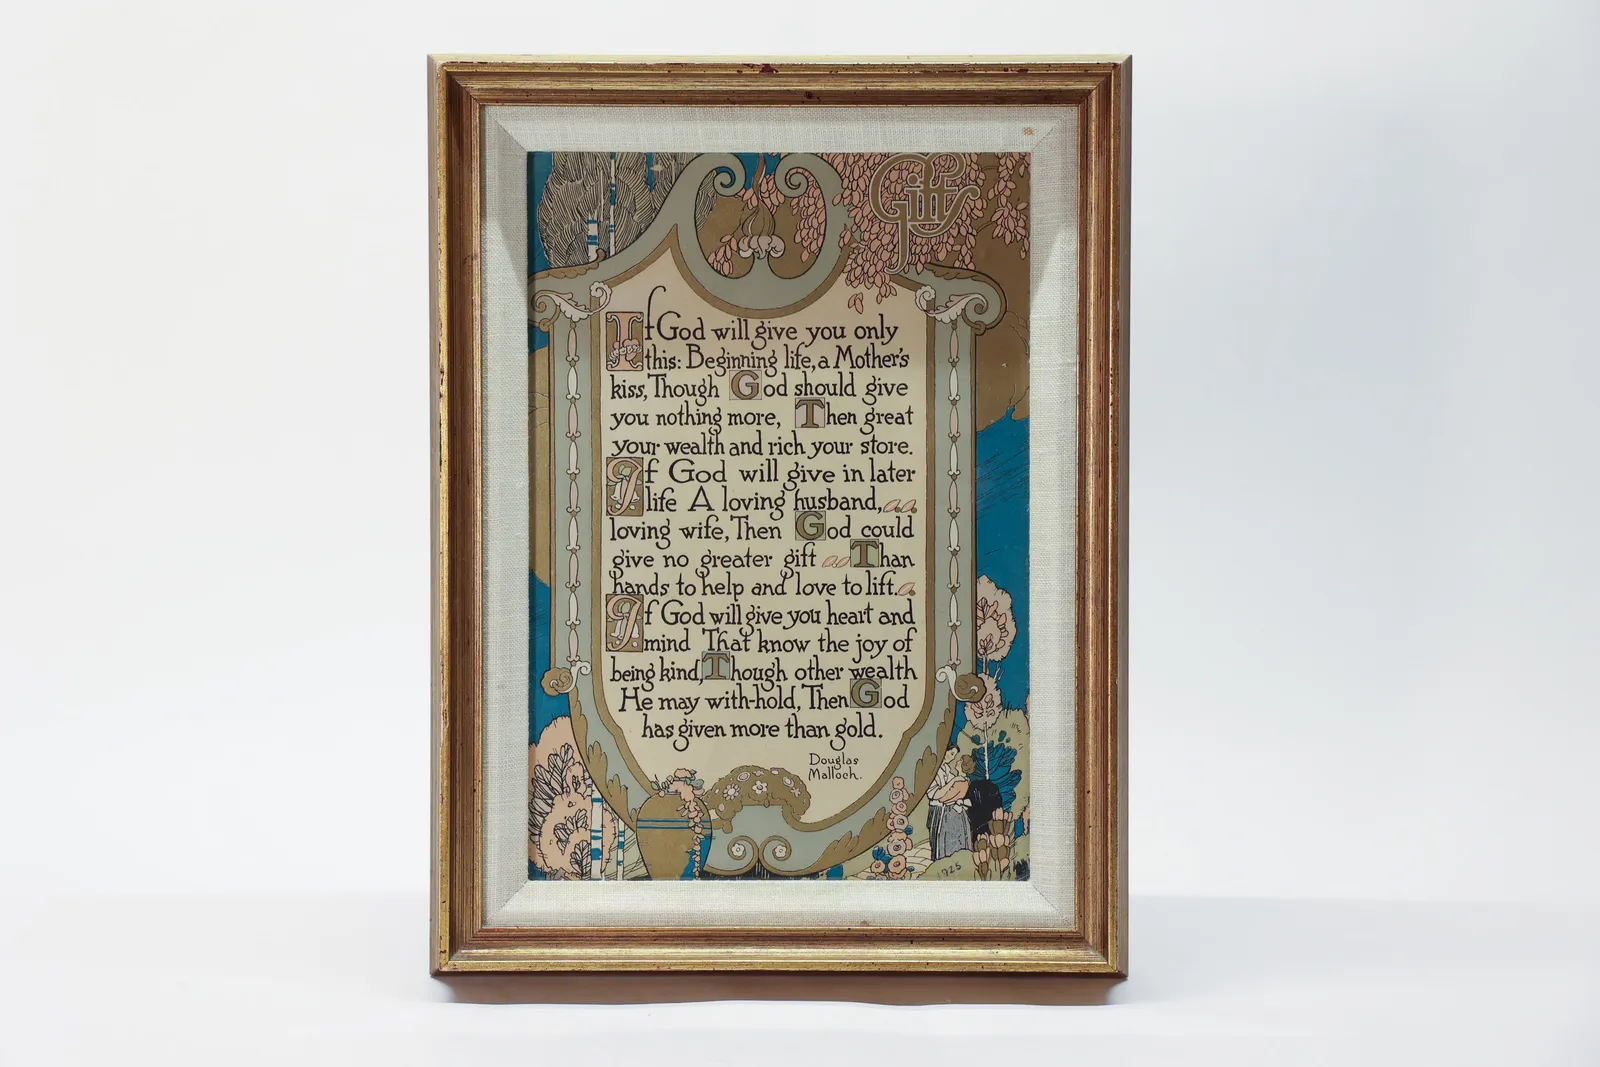 Gifts
If God will give you only
this: Beginning life, a Mother's
kiss, Though God should give
you nothing more, Then great
your wealth and rich your store.
If God will give in later
life A loving husband,
loving wife, Then God could
give no greater gift Than
hands to help and love to lift.
If God will give you heart and
mind That know the joy of
being kind, Though other wealth
He may with-hold, Then God
has given more than gold.
Douglas
Malloch.
1925